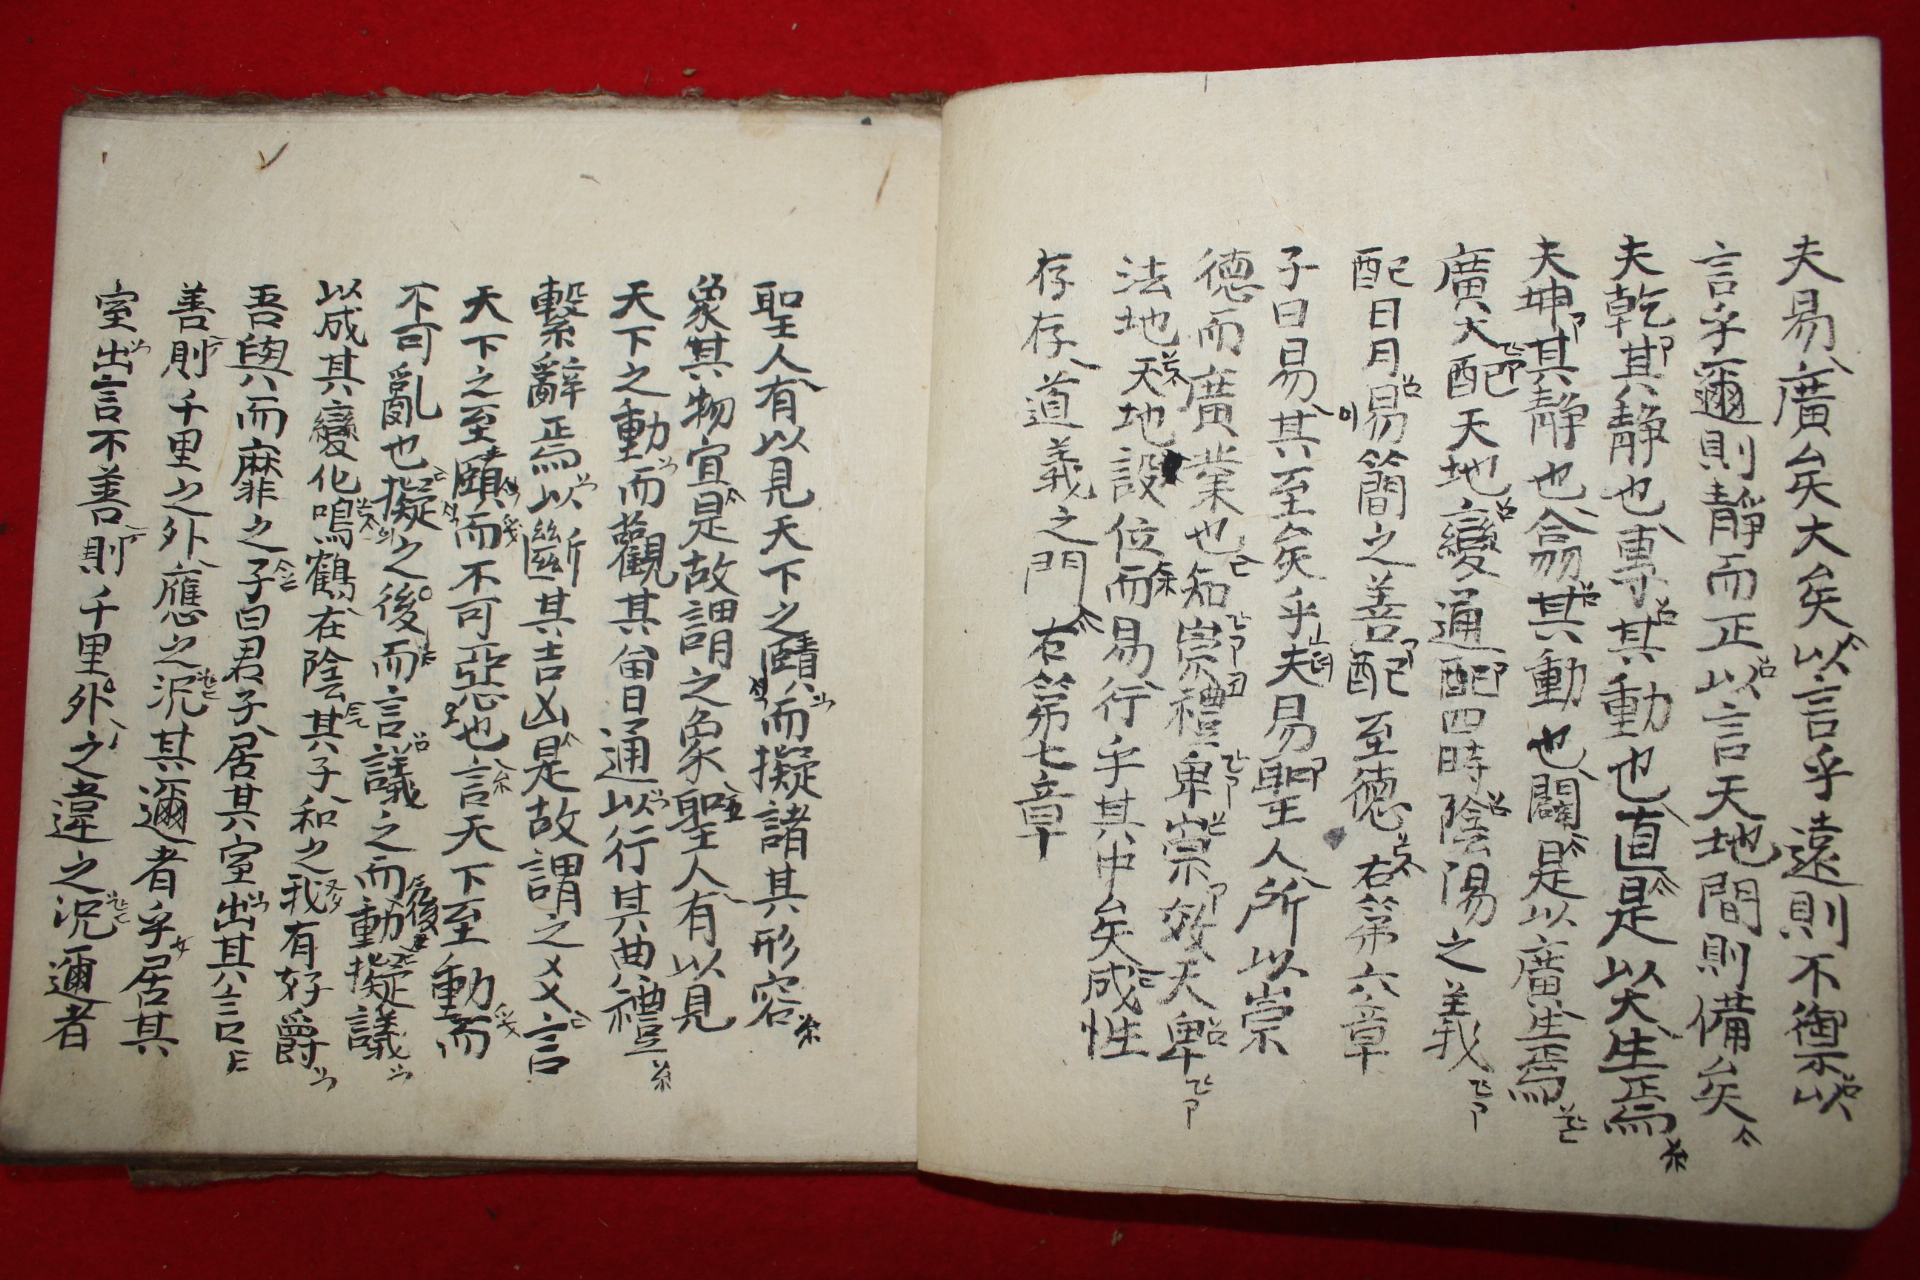 夫易廣矣大矣以言乎遠則不禦以
言乎邇則靜而正以言天地間則備矣
夫乾其靜也專其動也直是以大生焉
夫坤其靜也翕其動也闢是以廣生焉
廣大配天地變通配四時陰陽之義
配日月易簡之善配至德 右第六章
子曰易其至矣乎夫易聖人所以崇
德而廣業也知崇禮卑崇效天卑
法地天地設位而易行乎其中矣成性
存存道義之門 右第七章
聖人有以見天下之賾而擬諸其形容
象其物宜是故謂之象聖人有以見
天下之動而觀其會通以行其典禮
繫辭焉以斷其吉凶是故謂之爻言
天下之至賾而不可惡也言天下至動而
不可亂也擬之後而言議之而後動擬議
以成其變化鳴鶴在陰其子和之我有好爵
吾與而靡之子曰君子居其室出其言
善則千里之外應之況其邇者乎居其
室出言不善則千里外之違之況邇者